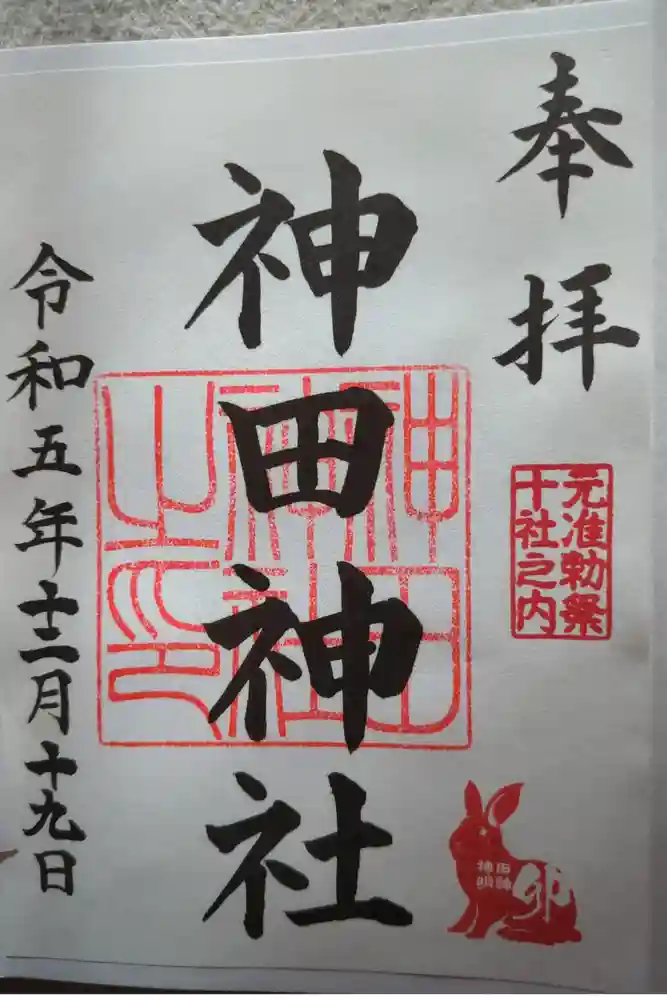 奉拝
元准勅祭
十社之内
卯
神田神社
神田神社之印
令和五年十二月十九日